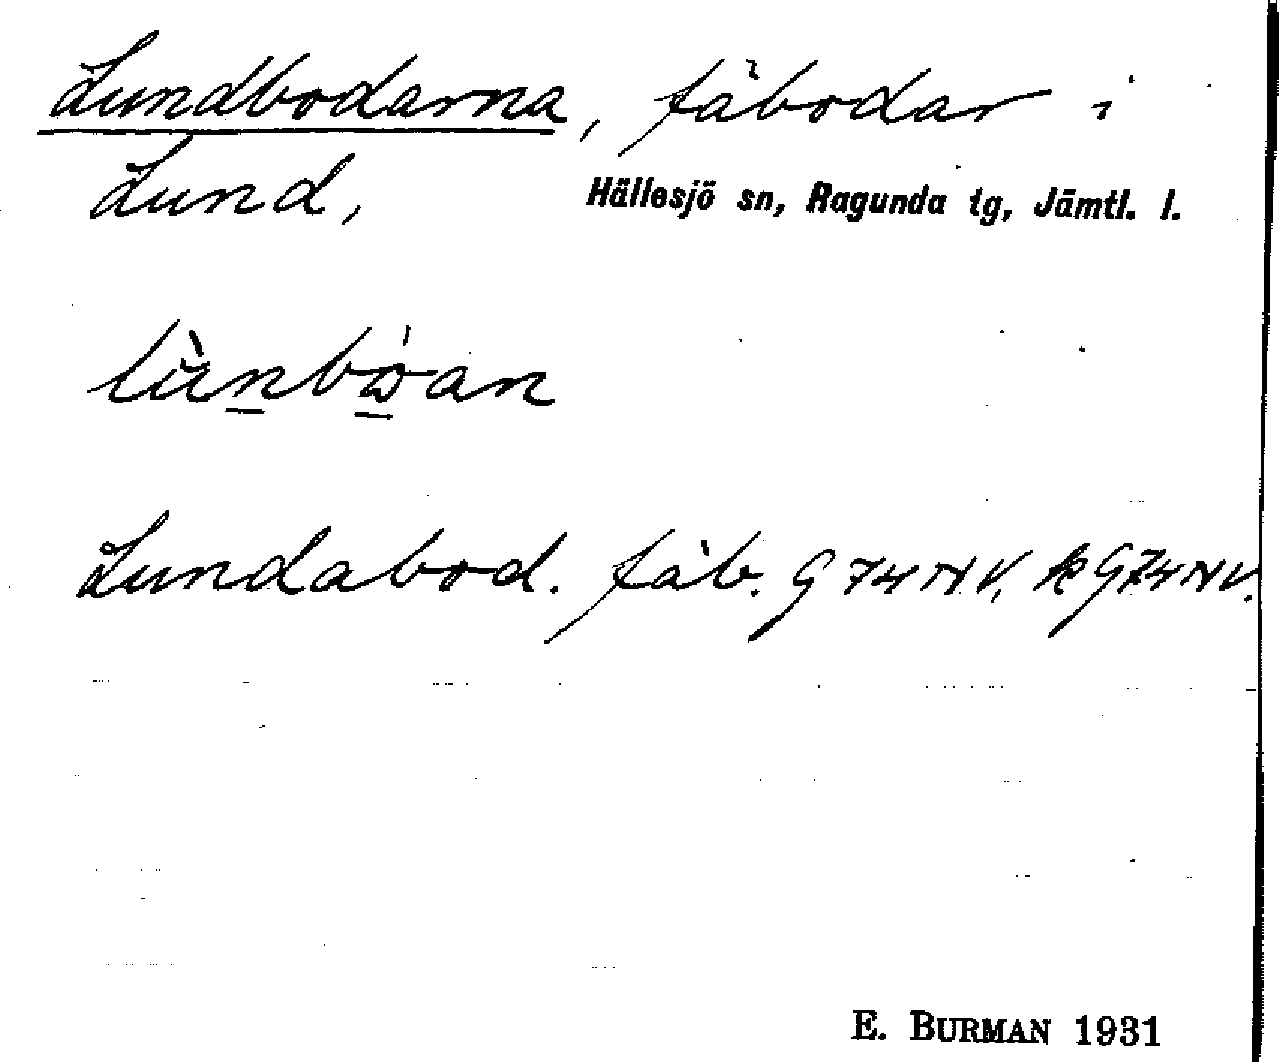 Lundbodarna, fäbodar i
Lund, Hällesjö sn, Ragunda tg, Jämtl. l.
Lundabod. fäb. G 74 NV, k G 74 NV.
E. BURMAN 1931